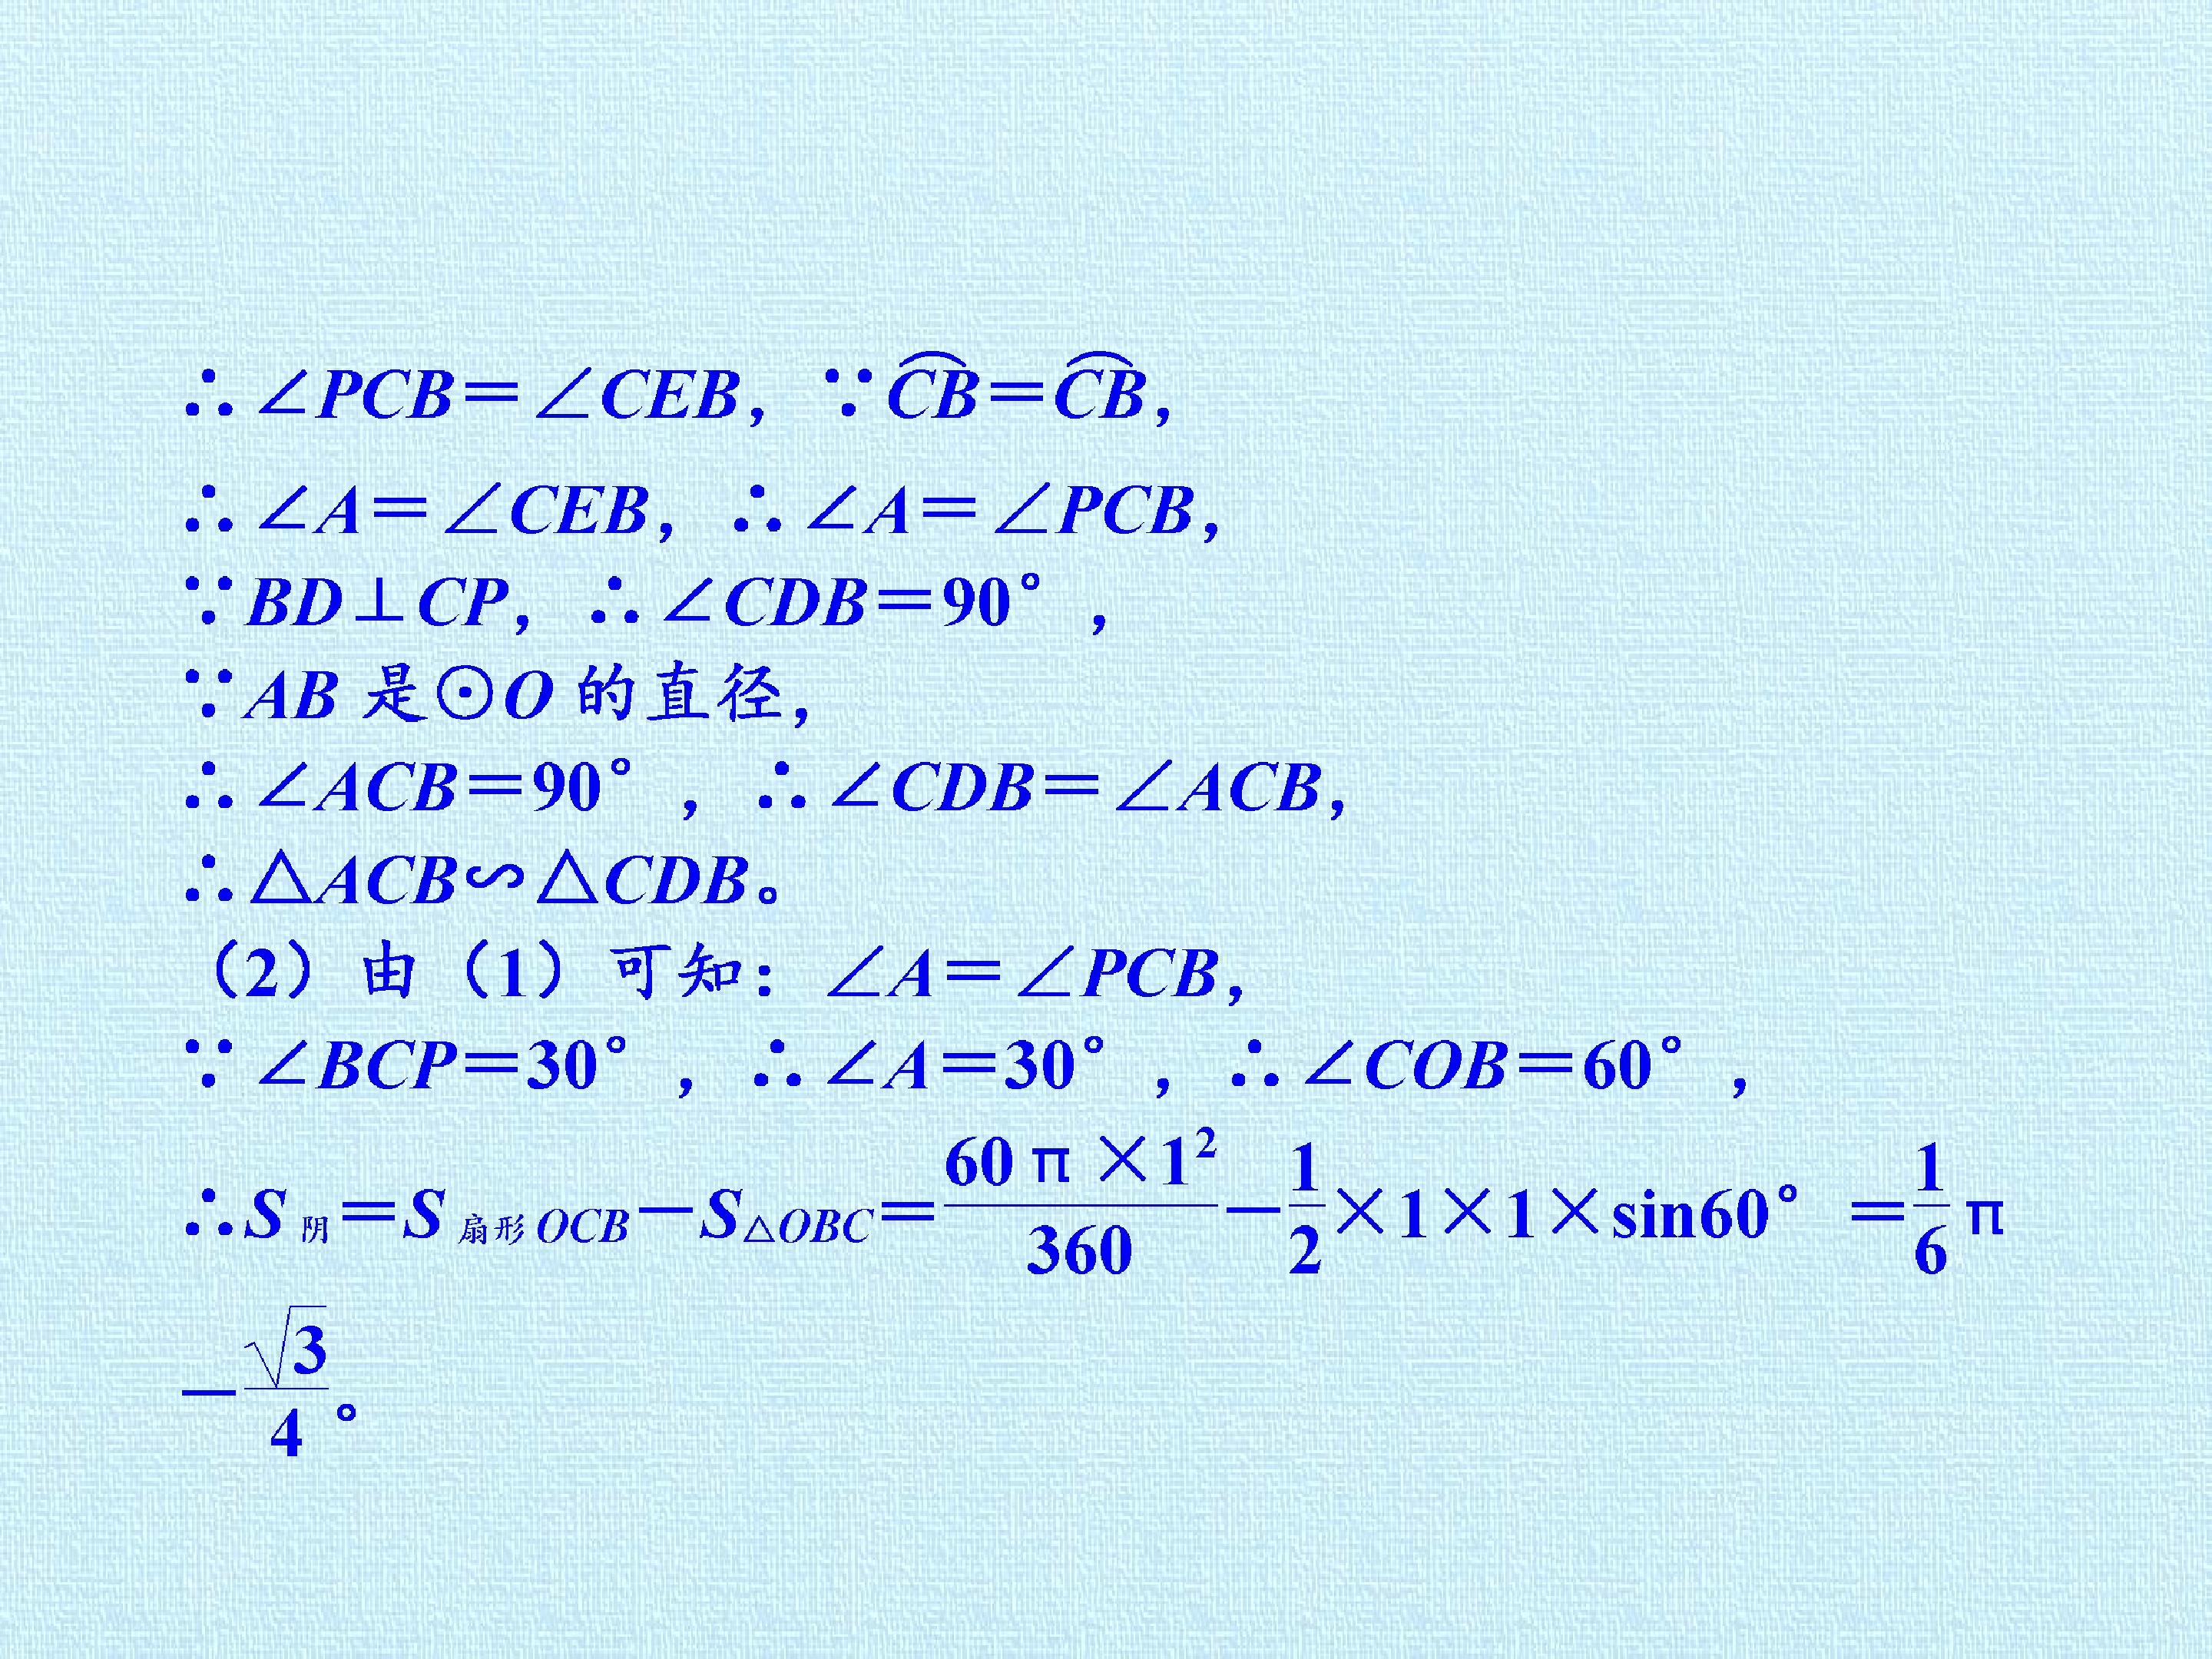 ∴∠PCB=∠CEB，∵$\overset{\frown}{CB}$=$\overset{\frown}{CB}$，
∴∠A=∠CEB，∴∠A=∠PCB，
∵BD⊥CP，∴∠CDB=90°，
∵AB 是⊙O 的直径，
∴∠ACB=90°，∴∠CDB=∠ACB，
∴△ACB∽△CDB。
（2）由（1）可知：∠A=∠PCB，
∵∠BCP=30°，∴∠A=30°，∴∠COB=60°，
∴$S_{阴}=S_{扇形OCB}-S_{△OBC}=\frac{60π×1^2}{360}-\frac{1}{2}×1×1×\sin60°=\frac{1}{6}π$
$-\frac{\sqrt{3}}{4}$。